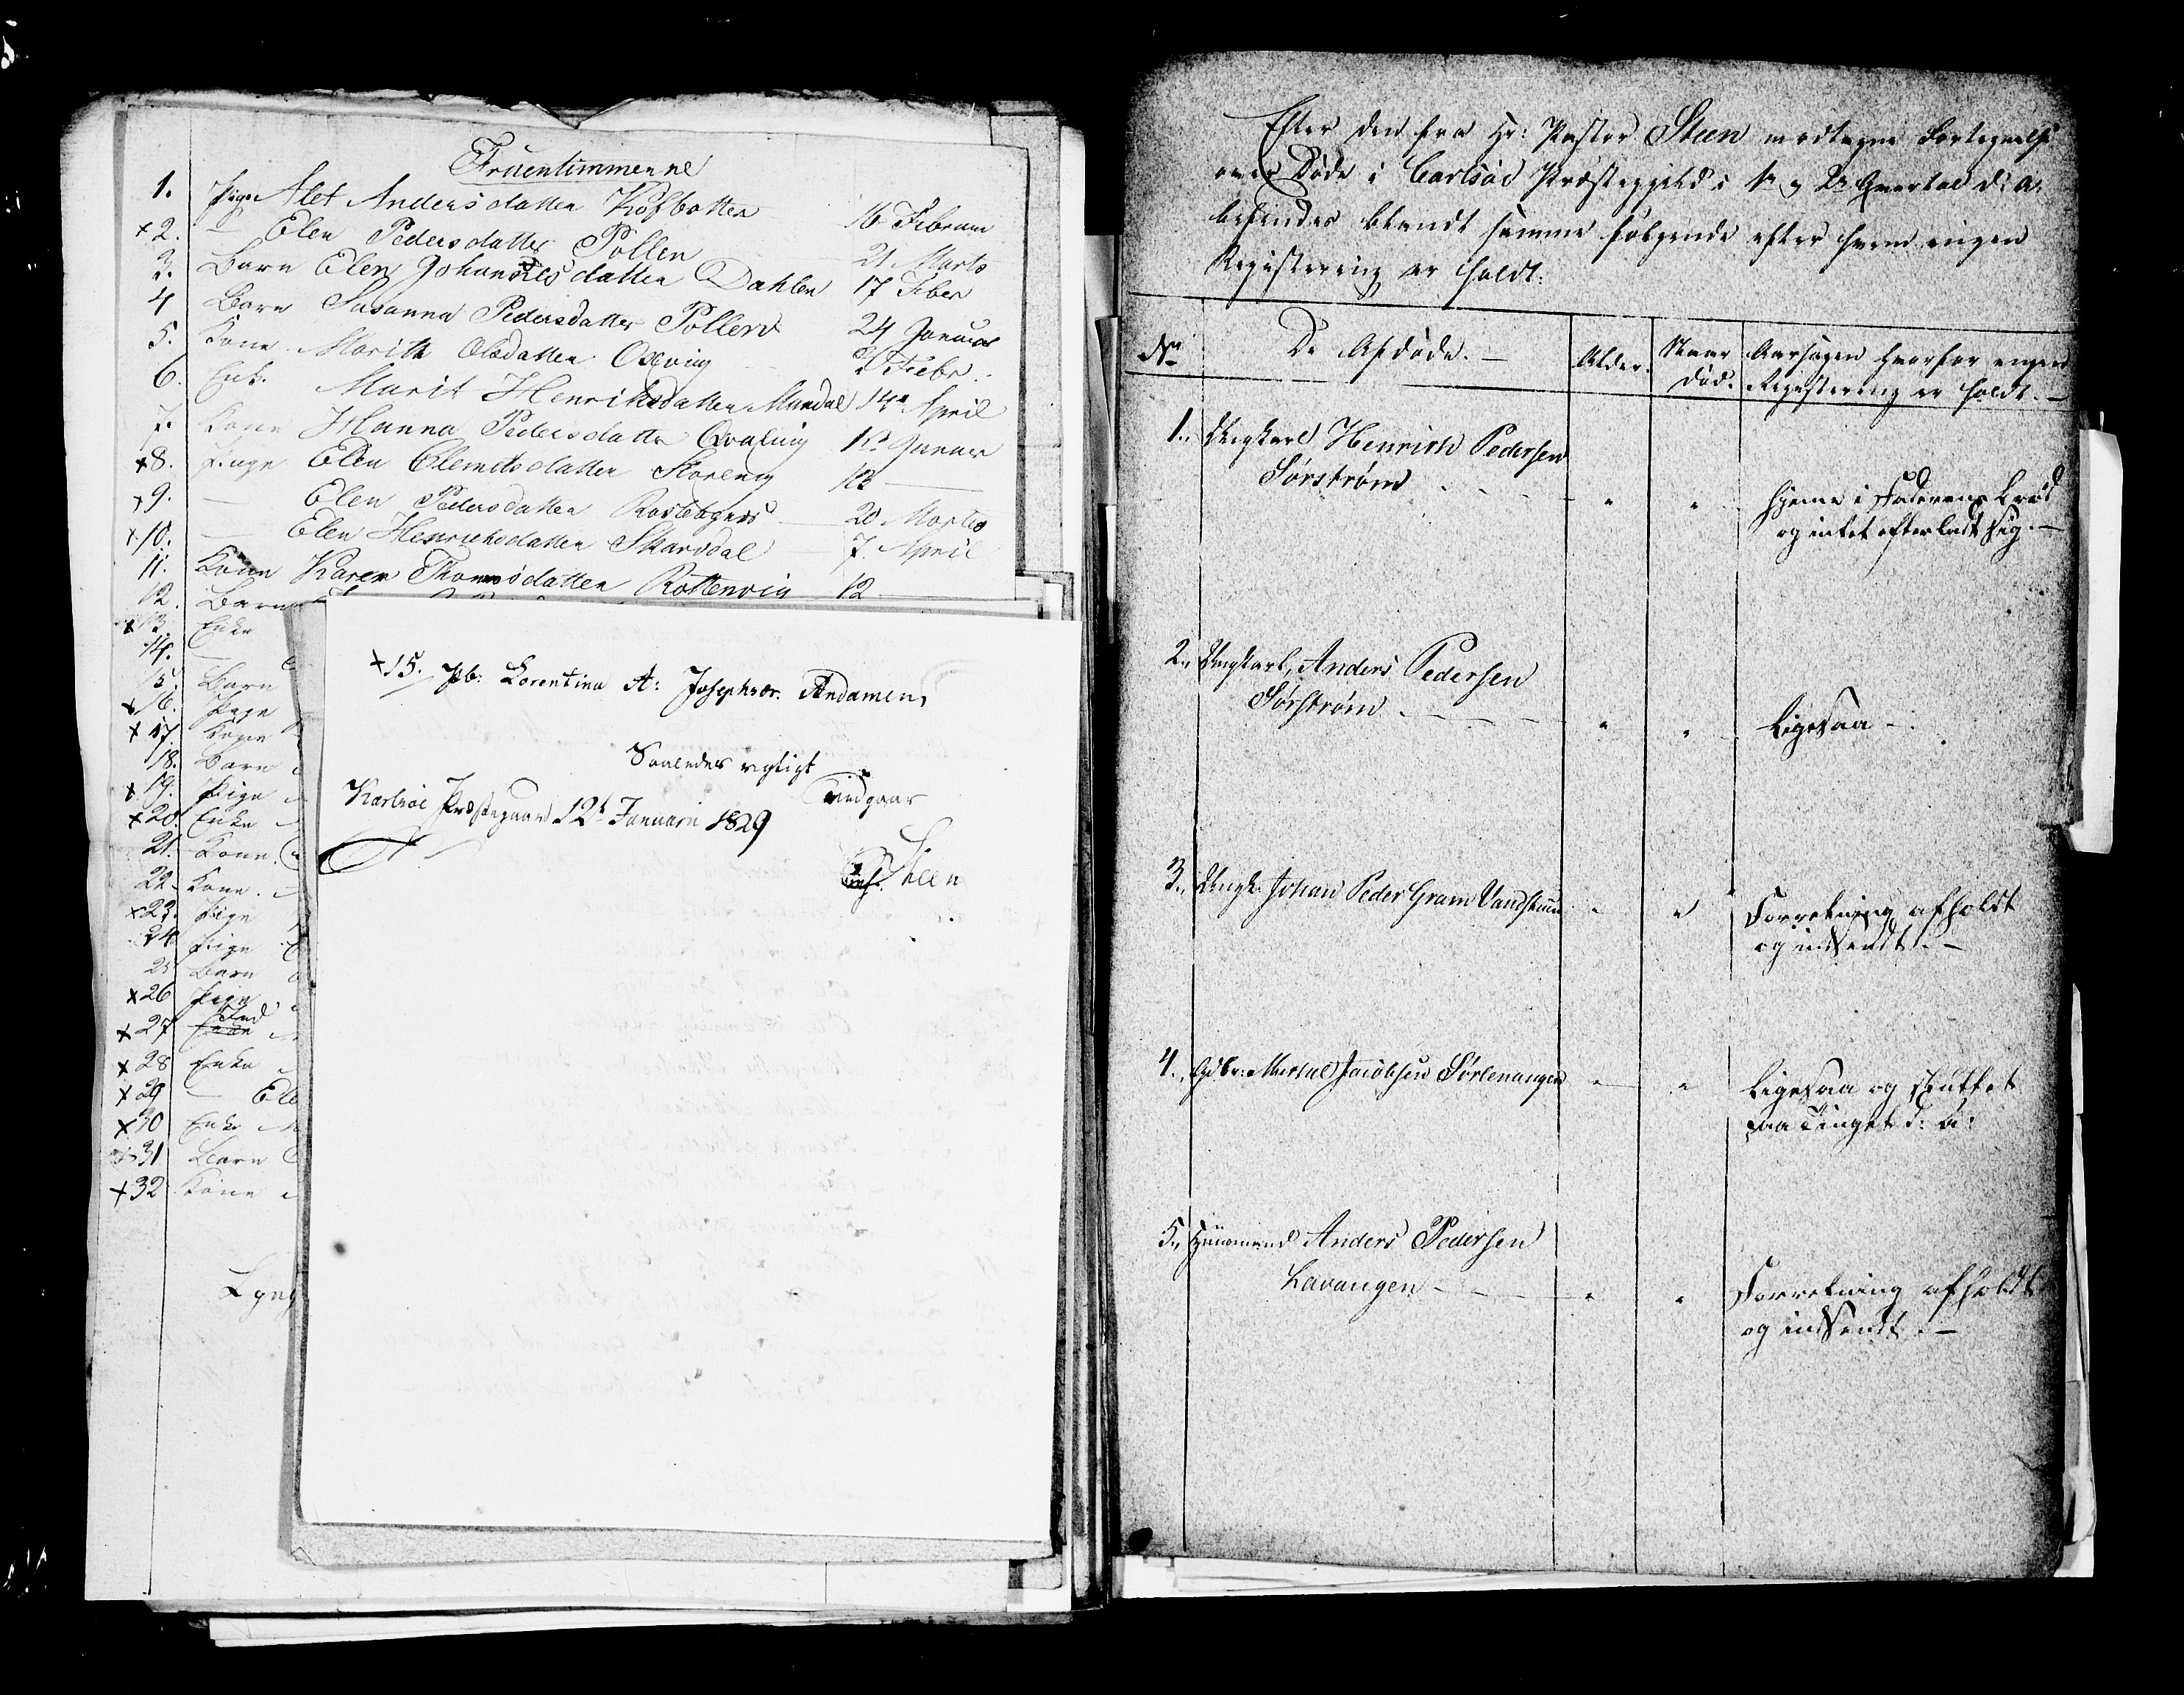 Fruentimmerne
1. Pige Alet Andersdatter Kofbatten 16 Februar
x 2. — Elen Pedersdatter Pollen 21 Marts
3. Barn Elen Johannesdatter Dahlen 17 Feber
4 Barn Susanna Pedersdatter Pollen 24 Januar
5. Kone Marith Olsdatter Oxevig 2 Febr.
6. Enke Marit Henrichsdatter Mandal 14de April
7. Kone Hanna Pedersdatter Qvalvig 1ste Januar
x8. Pige Elen Clemetsdatter Storeng 12 —
x9. — Elen Pedersdatter 20 Martes
x10. — Elen Henrichsdatter Skardal 7 April
11. Kone Karen Thomsdatter Rottenvig 12 —
12. Barn
x 13. Enke
14. —
15. Barn
x 16. Pige
x 17. Kone
18. Barn
x 19. Pige
x 20. Enke
21. Kone
22. Kone
x23. Pige
24. Pige
25 Barn
x26 Pige
x27 Ind Enke
x28 Enke
x29 — Ele
x30 Enke
31 Barn
x32 Kone
Lyng
x15. Pb: Lorentina A: Josephsdr. Andamen
Saaledes rigtigt
Karlsøe Præstegaard 12te Januari 1829 Vidgaar
Steen
Efter den fra Hr: Pastor Steen modtagne Fortegnelse
over Døde i Carlsøe Præstegjeld i 1te og 2det Qvartal d: A:
befindes blandt samme følgende efter hvem ingen
Registrering er holdt:
No De Afdøde. — Alder. Naar Død. Aarsagen hvorfor ingen
Registrering er holdt. —
1., Ungkarl Henrich Pedersen
Sørstrøm " " Hjemme i Faderens Brød
og intet efterladt sig. —
2., Ungkarl, Anders Pedersen
Sørstrøm " " Ligesaa —
3., Ungk: Johan Peder Gram Vandstuen " " Forretning afholdt
og indsendt. —
4., Gdbr: Mikal Jacobsen Sørlenangen " " Ligesaa og sluttet
paa Tinget d: A:
5., Huusmand Anders Pedersen
Lavangen " " Forretning afholdt
og indsendt. —